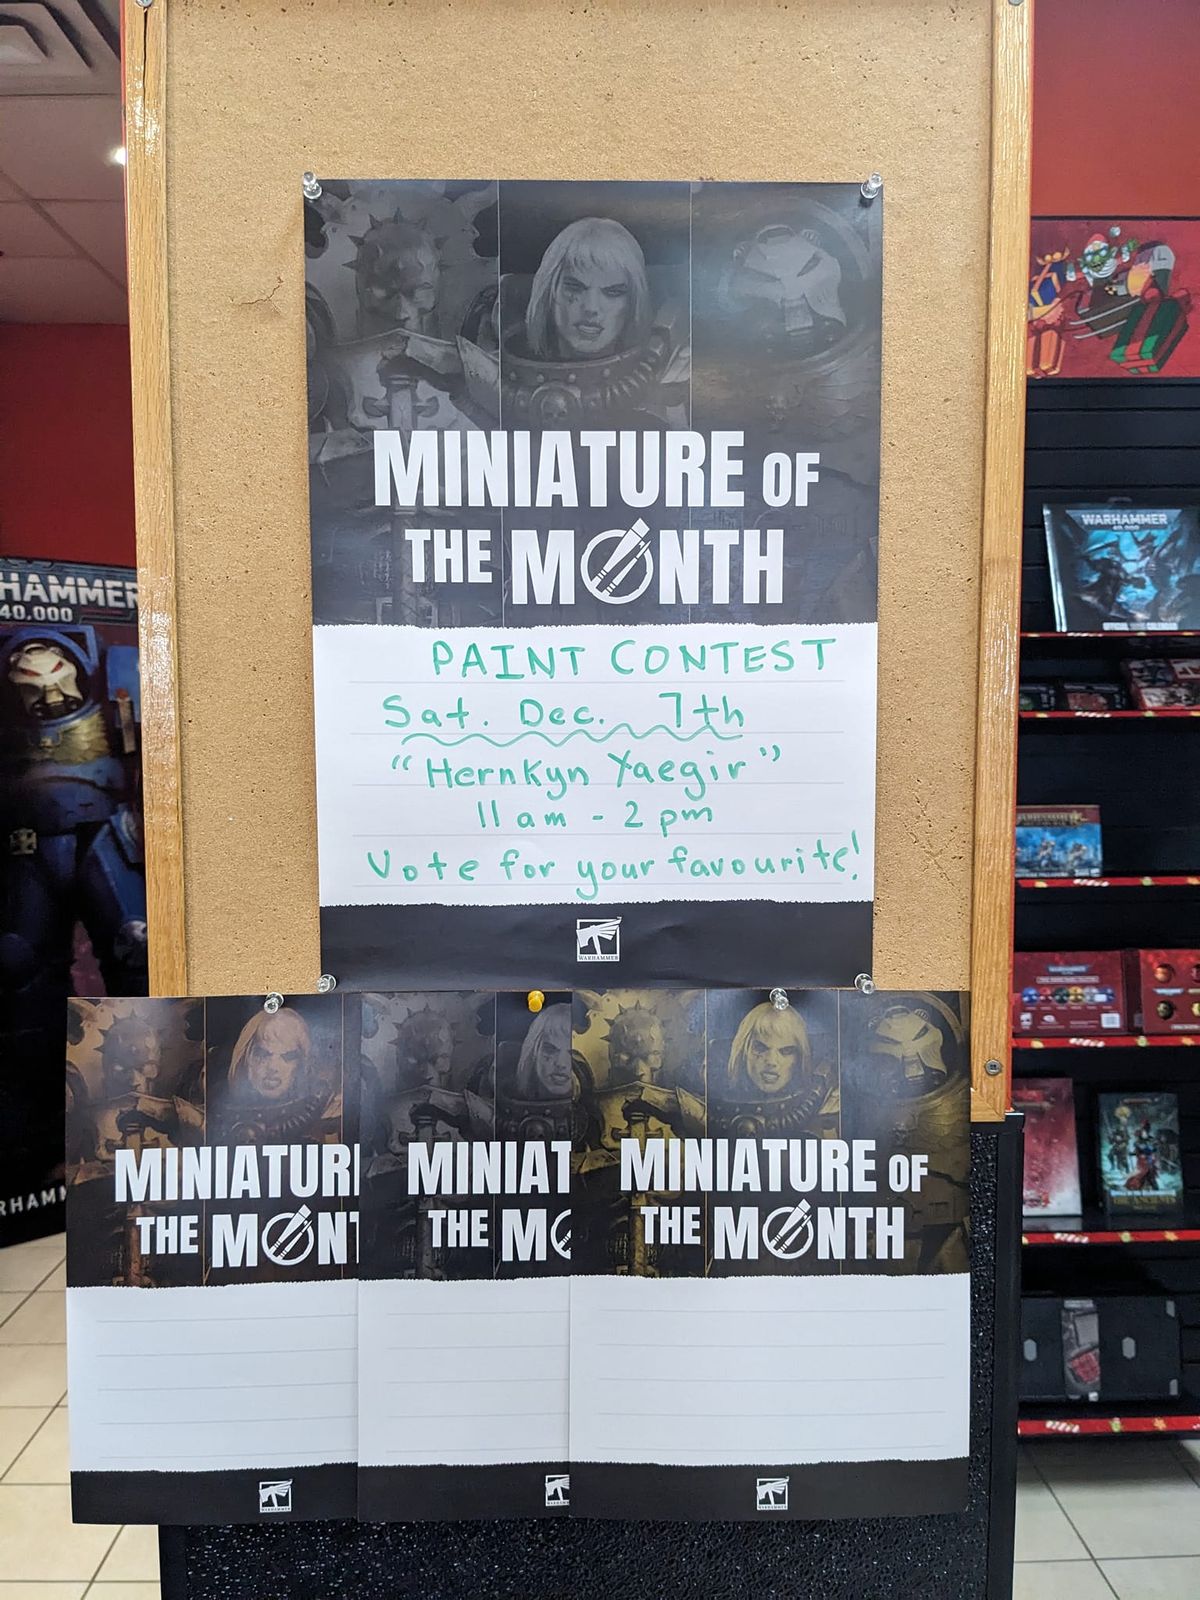 MINIATURE OF
THE MONTH
PAINT CONTEST
Sat. Dec. 7th
"Hernkyn Yaegir"
11am - 2pm
Vote for your favourite!
WARHAMMER
MINIATUR
THE MONT
WARHAMMER
MINIAT
THE MO
MINIATURE OF
THE MONTH
WARHAMMER
HAMMER
40,000
RHAMM
WARHAMMER
40,000